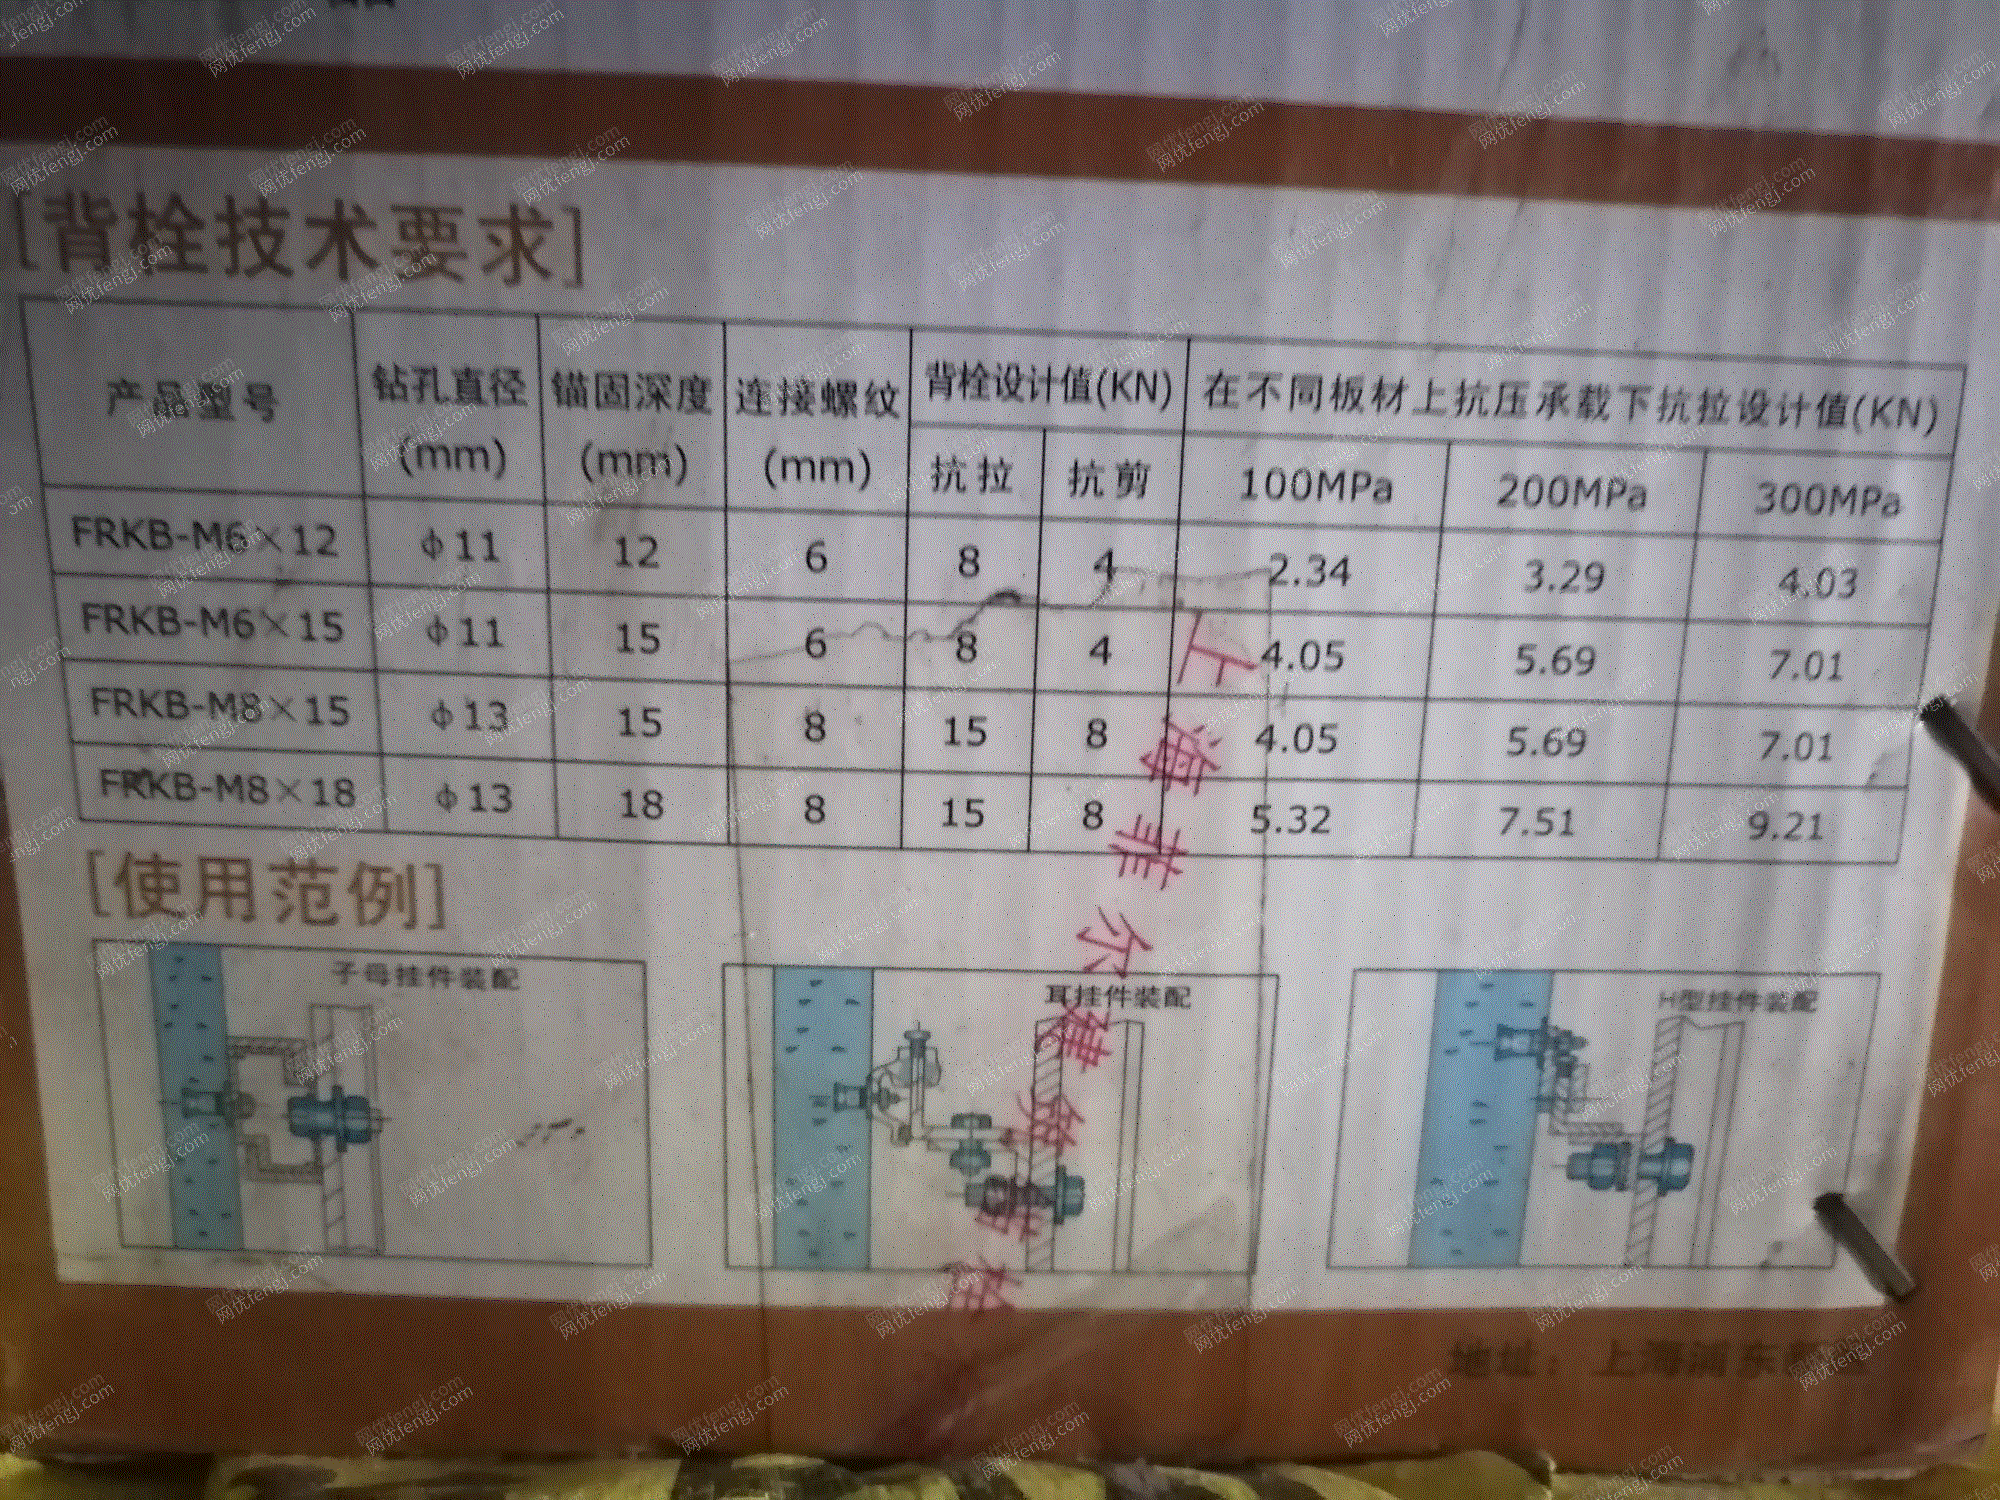 [背栓技术要求]
产品型号 钻孔直径(mm) 锚固深度(mm) 连接螺纹(mm) 背栓设计值(KN) 在不同板材上抗压承载下抗拉设计值(KN)
抗拉 抗剪 100MPa 200MPa 300MPa
FRKB-M6×12 φ11 12 6 8 4 2.34 3.29 4.03
FRKB-M6×15 φ11 15 6 8 4 4.05 5.69 7.01
FRKB-M8×15 φ13 15 8 15 8 4.05 5.69 7.01
FRKB-M8×18 φ13 18 8 15 8 5.32 7.51 9.21
[使用范例]
子母挂件装配
耳挂件装配
H型挂件装配
上海菲尔建
地址：上海浦东
网优fengj.com